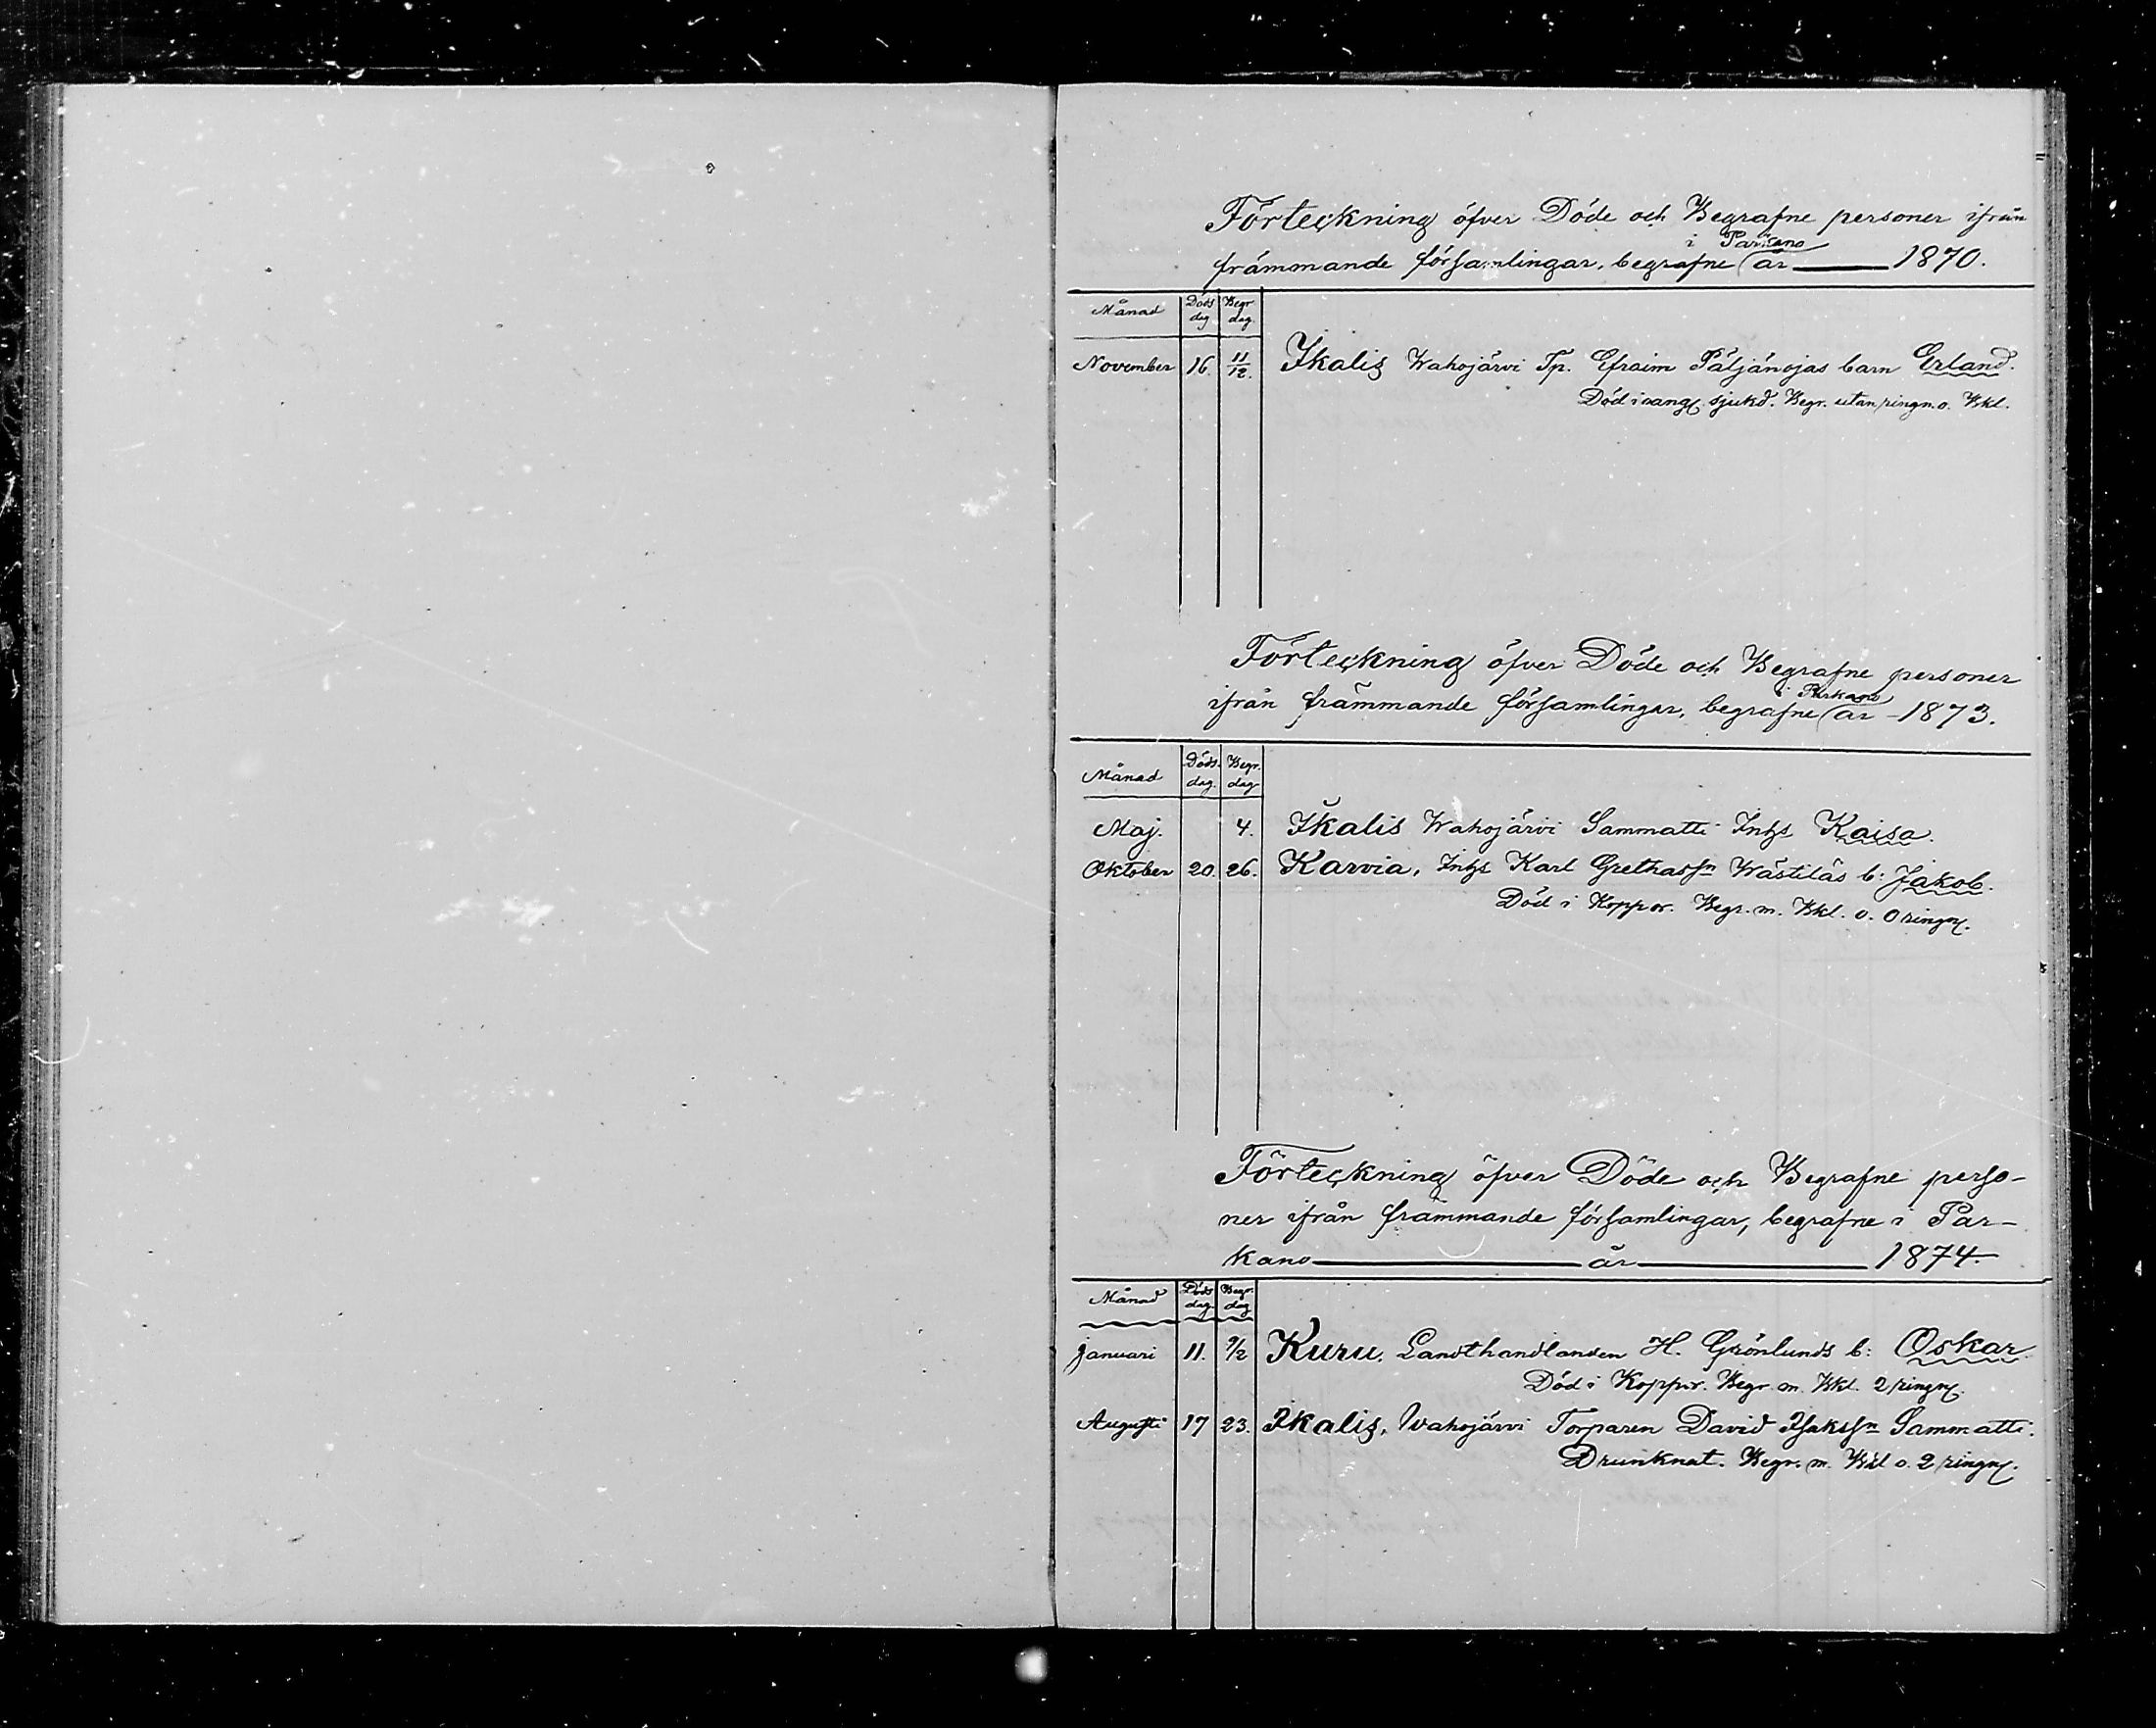 Förteckning öfver Döde och Begrafne personer ifrån
i Parkano
främmande församlingar, begrafne år 1870.
Månad Döds dag Begr dag.
November 16. 11/12. Ikalis Wahojärvi Tp. Efraim Päljänojas barn Erland.
Död i oang. sjukd. Begr. utan ringn. o. Kkl.
Förteckning öfver Döde och Begrafne personer
i Parkano
ifrån främmande församlingar, begrafne år - 1873.
Månad Döds dag. Begr. dag
Maj. 4. Ikalis Wahojärvi Sammatti Inhs Kaisa.
Oktober 20. 26. Karvia, Inhs Karl Grethassn Wästiläs b: Jakob.
Död i Koppor. Begr. m. Kkl. o. 0 ringn.
Förteckning öfver Döde och Begrafne perso-
ner ifrån främmande församlingar, begrafne i Par-
kano år 1874.
Månad Döds dag. Begr. dag
Januari 11. 9/2 Kuru, Landthandlanden H. Grönlunds b: Oskar.
Död i Koppor. Begr m. Kkl. 2 ringn.
Augusti 17 23. Ikalis, Wahojärvi Torparen David Isakssn Sammatti.
Drunknat. Begr. m. Kkl o. 2 ringn.